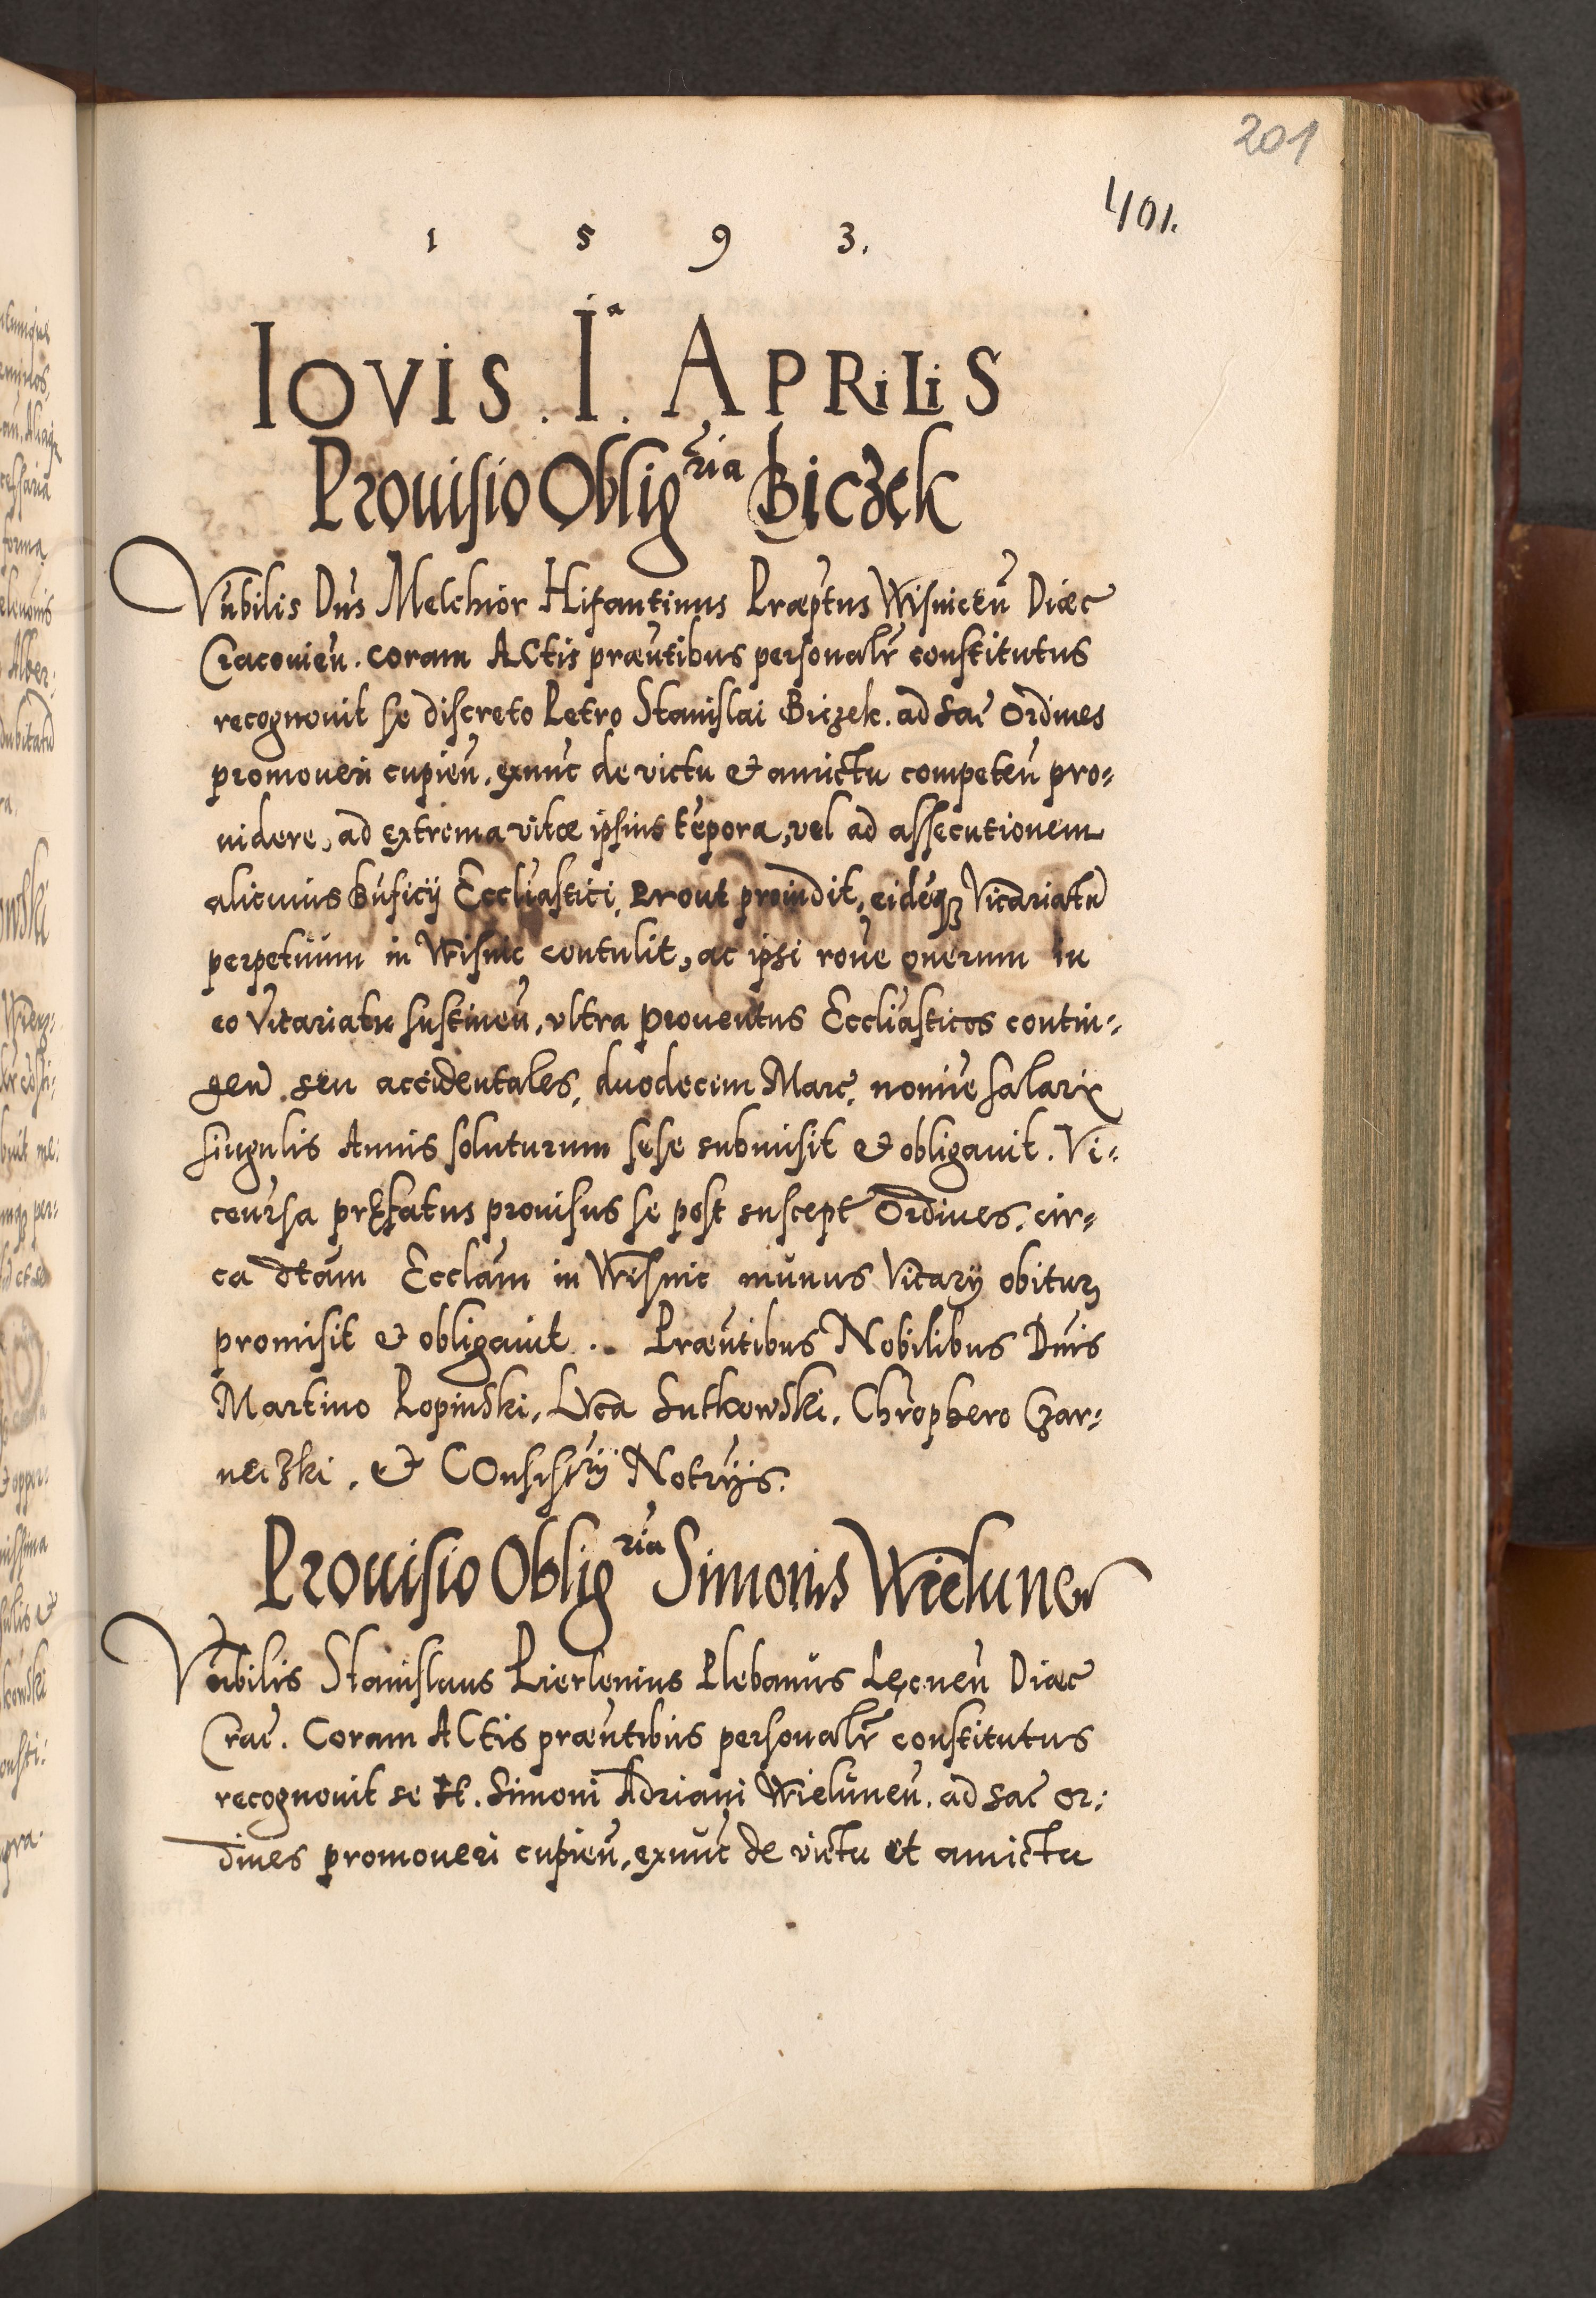 201
401.
1 5 9 3.
IOVIS . Iᵃ . APRILIS
Prouisio Obligʳⁱᵃ Biczek
Vn̄bilis Dn̄s Melchior Hifantinus Præp̄tus Wisnicēn̄ Diæc̄
Cracouien̄. coram ACtis præn̄tibus personalr̄ constitutus
recognouit se discreto Petro Stanislai Biczek. ad sac̄ ordines
promoueri cupien̄. exnūc de victu et amictu competen̄ pro=
uidere, ad extrema vitæ ipsius tēpora, vel ad assecutionem
alicuius Bn̄ficij Eccliastici, Prout prouidit, eidēqꝫ Vicariatū
perpetuum in Wisnic contulit, ac ipsi rōne onerum in
eo Vicariatu sustinen̄, vltra prouentus Eccliasticos contin=
gen̄. seu accidentales, duodecim Marc̄, nomīe salarij
singulis Annis soluturum sese submisit et obligauit. Vi=
ceuersa præfatus prouisus se post suscept̄ Ordines, cir=
ca dtām Ecclām in Wisnic munus Vicarij obitur̄
promisit et obligauit .. Præn̄tibus Nobilibus Dn̄is
Martino Lopinski, Luca Lutkowski, Chrōphero Czar=
neczki, et COnsistrij Notrijs.
Prouisio Obligʳⁱᵃ Simonis Wielunen̄
Vn̄bilis Stanislaus Pierlenius Plebanus Lęcnen̄ Diæc̄
Crac̄. Coram ACtis præn̄tibus personalr̄ constitutus
recognouit se st. Simoni Adriani Wielunen̄. ad sac̄ or=
dines promoueri cupien̄, exnūc de victu et amictu